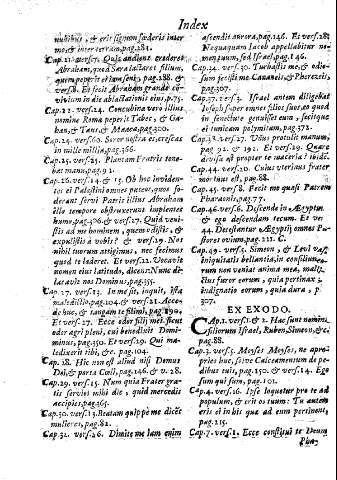 Index
nubibus, & erit signum fœderis inter
me & inter terram, pag.281.
Cap.21. vers.7. Quis audiens crederet
Abraham, quod Sara lactaret filium,
quem peperit ei iam seni, pag.288. &
vers.8. Et fecit Abraham grande co-
vivium in die ablactationis eius, p.75.
Cap.22. vers.24. Concubina vero illius,
nomine Roma peperit Tabee, & Ga-
han, & Taas, & Maaca, pag.300.
Cap.24. vers.60. Soror nostra es, crescas
in mille millia, pag.356.
Cap.25. vers.25. Plantam Fratris tene-
bat manu, pag.91.
Cap.26. vers.14. & 15. Ob hoc inviden-
tes ei Palæstini omnes puteos, quos fo-
derant servi Patris illius Abraham
illo tempore obstruxerunt implentes
humo, pag.306. & vers.27. Quid veni-
stis ad me hominem, quem odistis, &
expulistis à vobis? & vers.29. Vt
nihil tuorum attigimus, nec fecimus
quod te læderet. Et vers.22. Vocavit
nomen eius latitudo, dicens: Nunc di-
latavit nos Dominus, pag.355.
Cap.27. vers.12. Inducat super me
maledictio, pag.104. & vers.21. Accede
huc, & tangam te fili mi, pag.290.
Et vers.27. Ecce odor filii mei, sicut
odor agri pleni, cui benedixit Domi-
minus, pag.350. Et vers.29. Qui ma-
ledixerit tibi, & c. pag.104.
Cap.28. Hic non est aliud nisi Domus
Dei, & porta Cœli, pag.146. & v.28.
Cap.29. vers.15. Num quia Frater gra-
tis servies mihi dic, quid mercedis
accipies, pag.365.
Cap.30. vers.13. Beatam quippe me dicet
mulieres, pag.82.
Cap.32. vers.26. Dimitte me iam enim
ascendit aurora, pag.146. Et vers.28.
Nequaquam Iacob appellabitur no-
men tuum, sed Israel, pag.146.
Cap.34. vers.30. Turbastis me, & odio-
sum fecistis me Cananeis, & Pherezeis,
pag.307.
Cap.37. vers.3. Israel autem diligebat
Ioseph super omnes filios suos, eo quod
in senectute genuisset eum, fecitque
ei tunicam polymitam, pag.372.
Cap.38. vers.27. Vnus protulit manum,
pag.91. & 192. Et vers.29. Quare
divisa est propter te maceria? ibidē.
Cap.44. vers.20. Cuius uterinus frater
mortuus est, pag.88.
Cap.45. vers.8. Fecit me quasi Patrem
Pharaonis, pag.77.
Cap.46. vers.6. Descende in Ægyptum
& ego descendam tecum. Et ver.
44. Detestantur Ægyptii omnes Pa-
stores ovium, pag.221. C.
Cap.49. vers.5. Simeon, & Levi vasa
iniquitatis bellantia, in consilium eo-
rum non veniat anima mea, maledi-
ctus furor eorum, quia pertinax; &
indignatio eorum, quia dura, p.
307.
EX EXODO.
Cap.1. vers.1. & 2. Hæc sunt nomina
filiorum Israel, Ruben, Simeon, & c.
pag.88.
Cap.3. vers.5. Moyses Moyses, ne apro-
pies huc, solve Calceamentum de pe-
dibus tuis, pag.150. & vers.14. Ego
sum qui sum, pag.101.
Cap.4. vers.16. Ipse loquetur pro te ad
populum, & erit os tuum: Tu autem
eris ei in his quæ ad eum pertinent,
pag.215.
Cap.7. vers.1. Ecce constitui te Deum
Phao